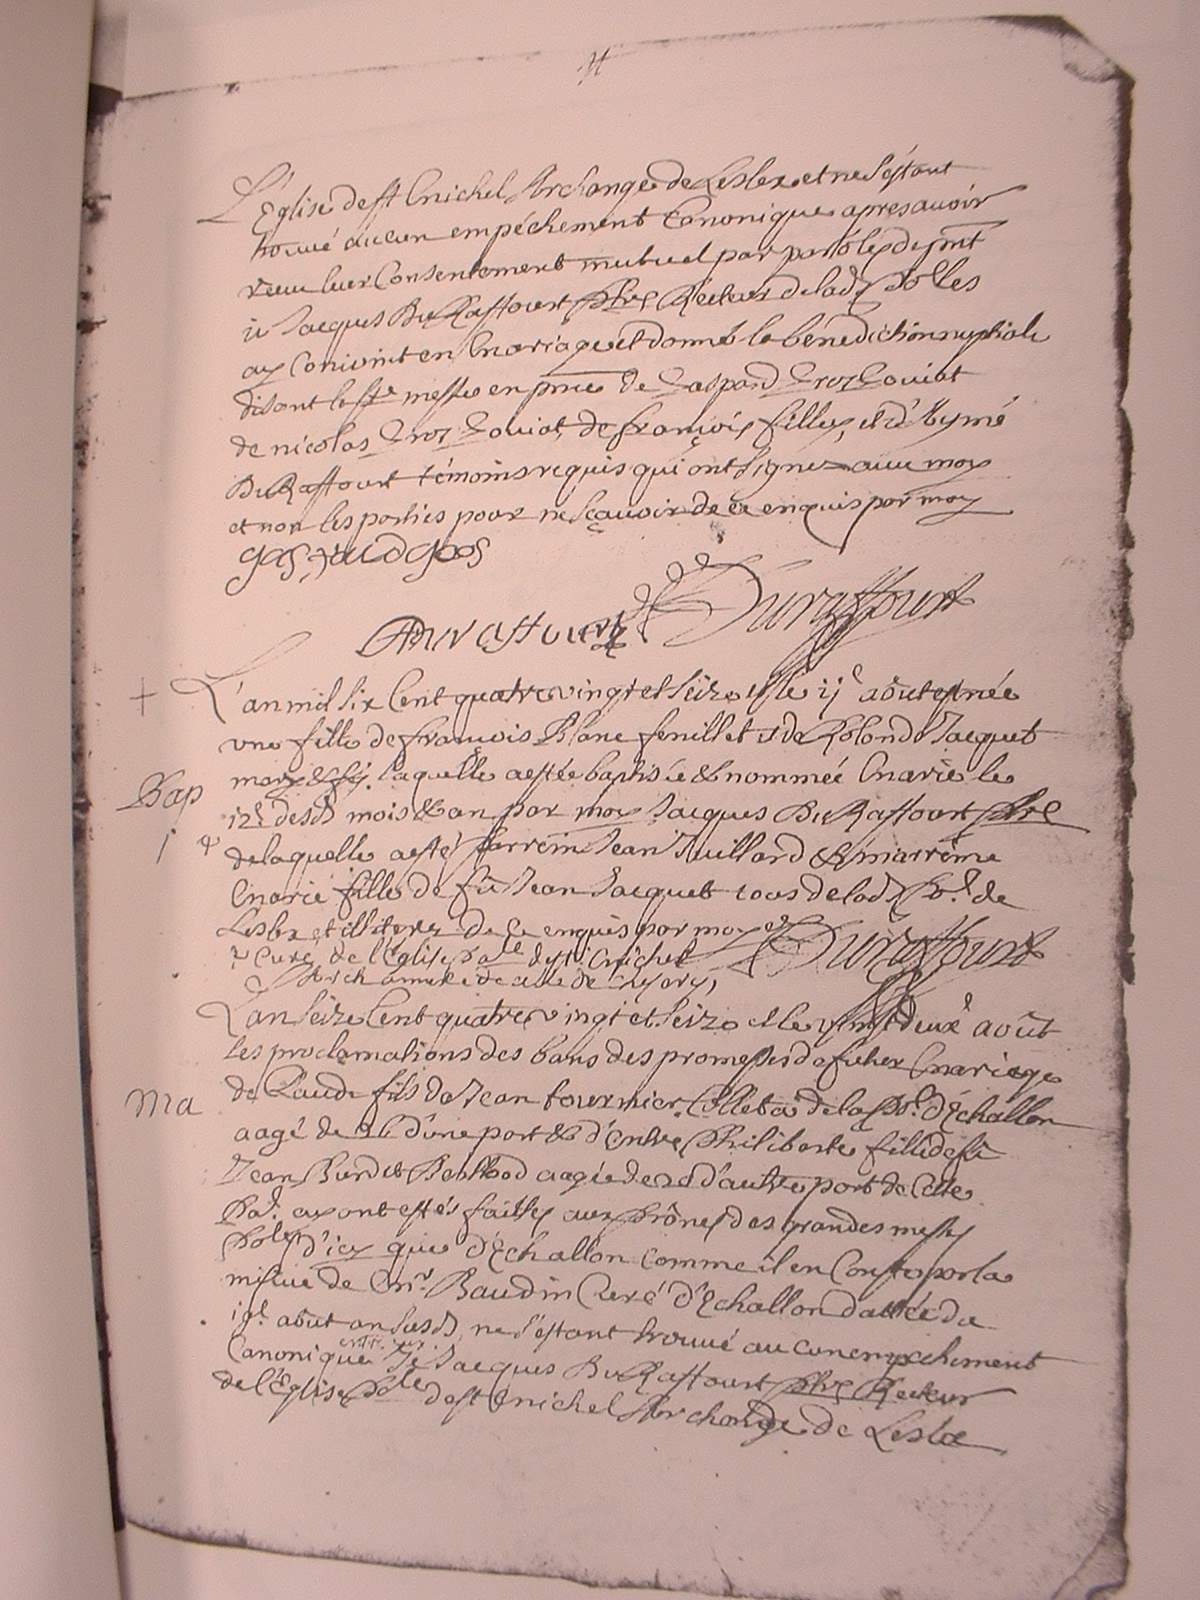 L'Eglise de st Michel Archange de Lesler et ne s'estant
trouvé aucun empéchement Canonique apres avoir
receu leur Consentement mutuel par parolles de pnt
ie Jacques DuRaffourt pbre Recteur de lad. polles
ay Conioint en Mariage et donné la bénédiction nuptiale
disant la ste messe en pnce de Gaspard Groz Goviat
de nicolas Groz Goviat, de françois fillex, et d'Aymé
DuRaffourt témoins requis qui ont signez avec moy
et non les parties pour ne sçavoir de ce enquis par moy
gaspard gros
Duraffourt Duraffourt
L'an mil six Cent quatre vingt et seize et le 11e aôut est née
une fille de françois Blanc feuillet et de Rolande Jacquet
laquelle a estée baptisée & nommée Marie le
12e desd. mois & an par moy Jacques DuRaffourt pbre
de laquelle a esté parrein Jean Juillard & marreine
Marie fille de fû Jean Jacquet tous de lad. po. de
Lesler et illiterez de ce enquis par moy Duraffourt
Curé de l'Eglise pale de st Michel
Bap
1
L'an seize Cent quatre vingt et seize et le vingt deux aôut
les proclamations des bans des promesses de futur Mariage
de Claude fils de Jean tournier Colleta de la po. d'Echallon
aagé de 26 d'une part & d'entre Philiberte fille de fû
Jean Burdet aagée de d'autre part de Cette
po. ayant estés faittes aux prônes des grandes messes
poles d'icy que d'Echallon comme il en Conste par la
misive de Mr. Baudin Curé d'Echallon dattée du
19e aôut an susd, ne s'estant trouvé aucun empechement
Canonique entre eux. Je Jacques DuRaffourt pbre Recteur
de l'Eglise pole de st Michel Archange de Lesler
Ma